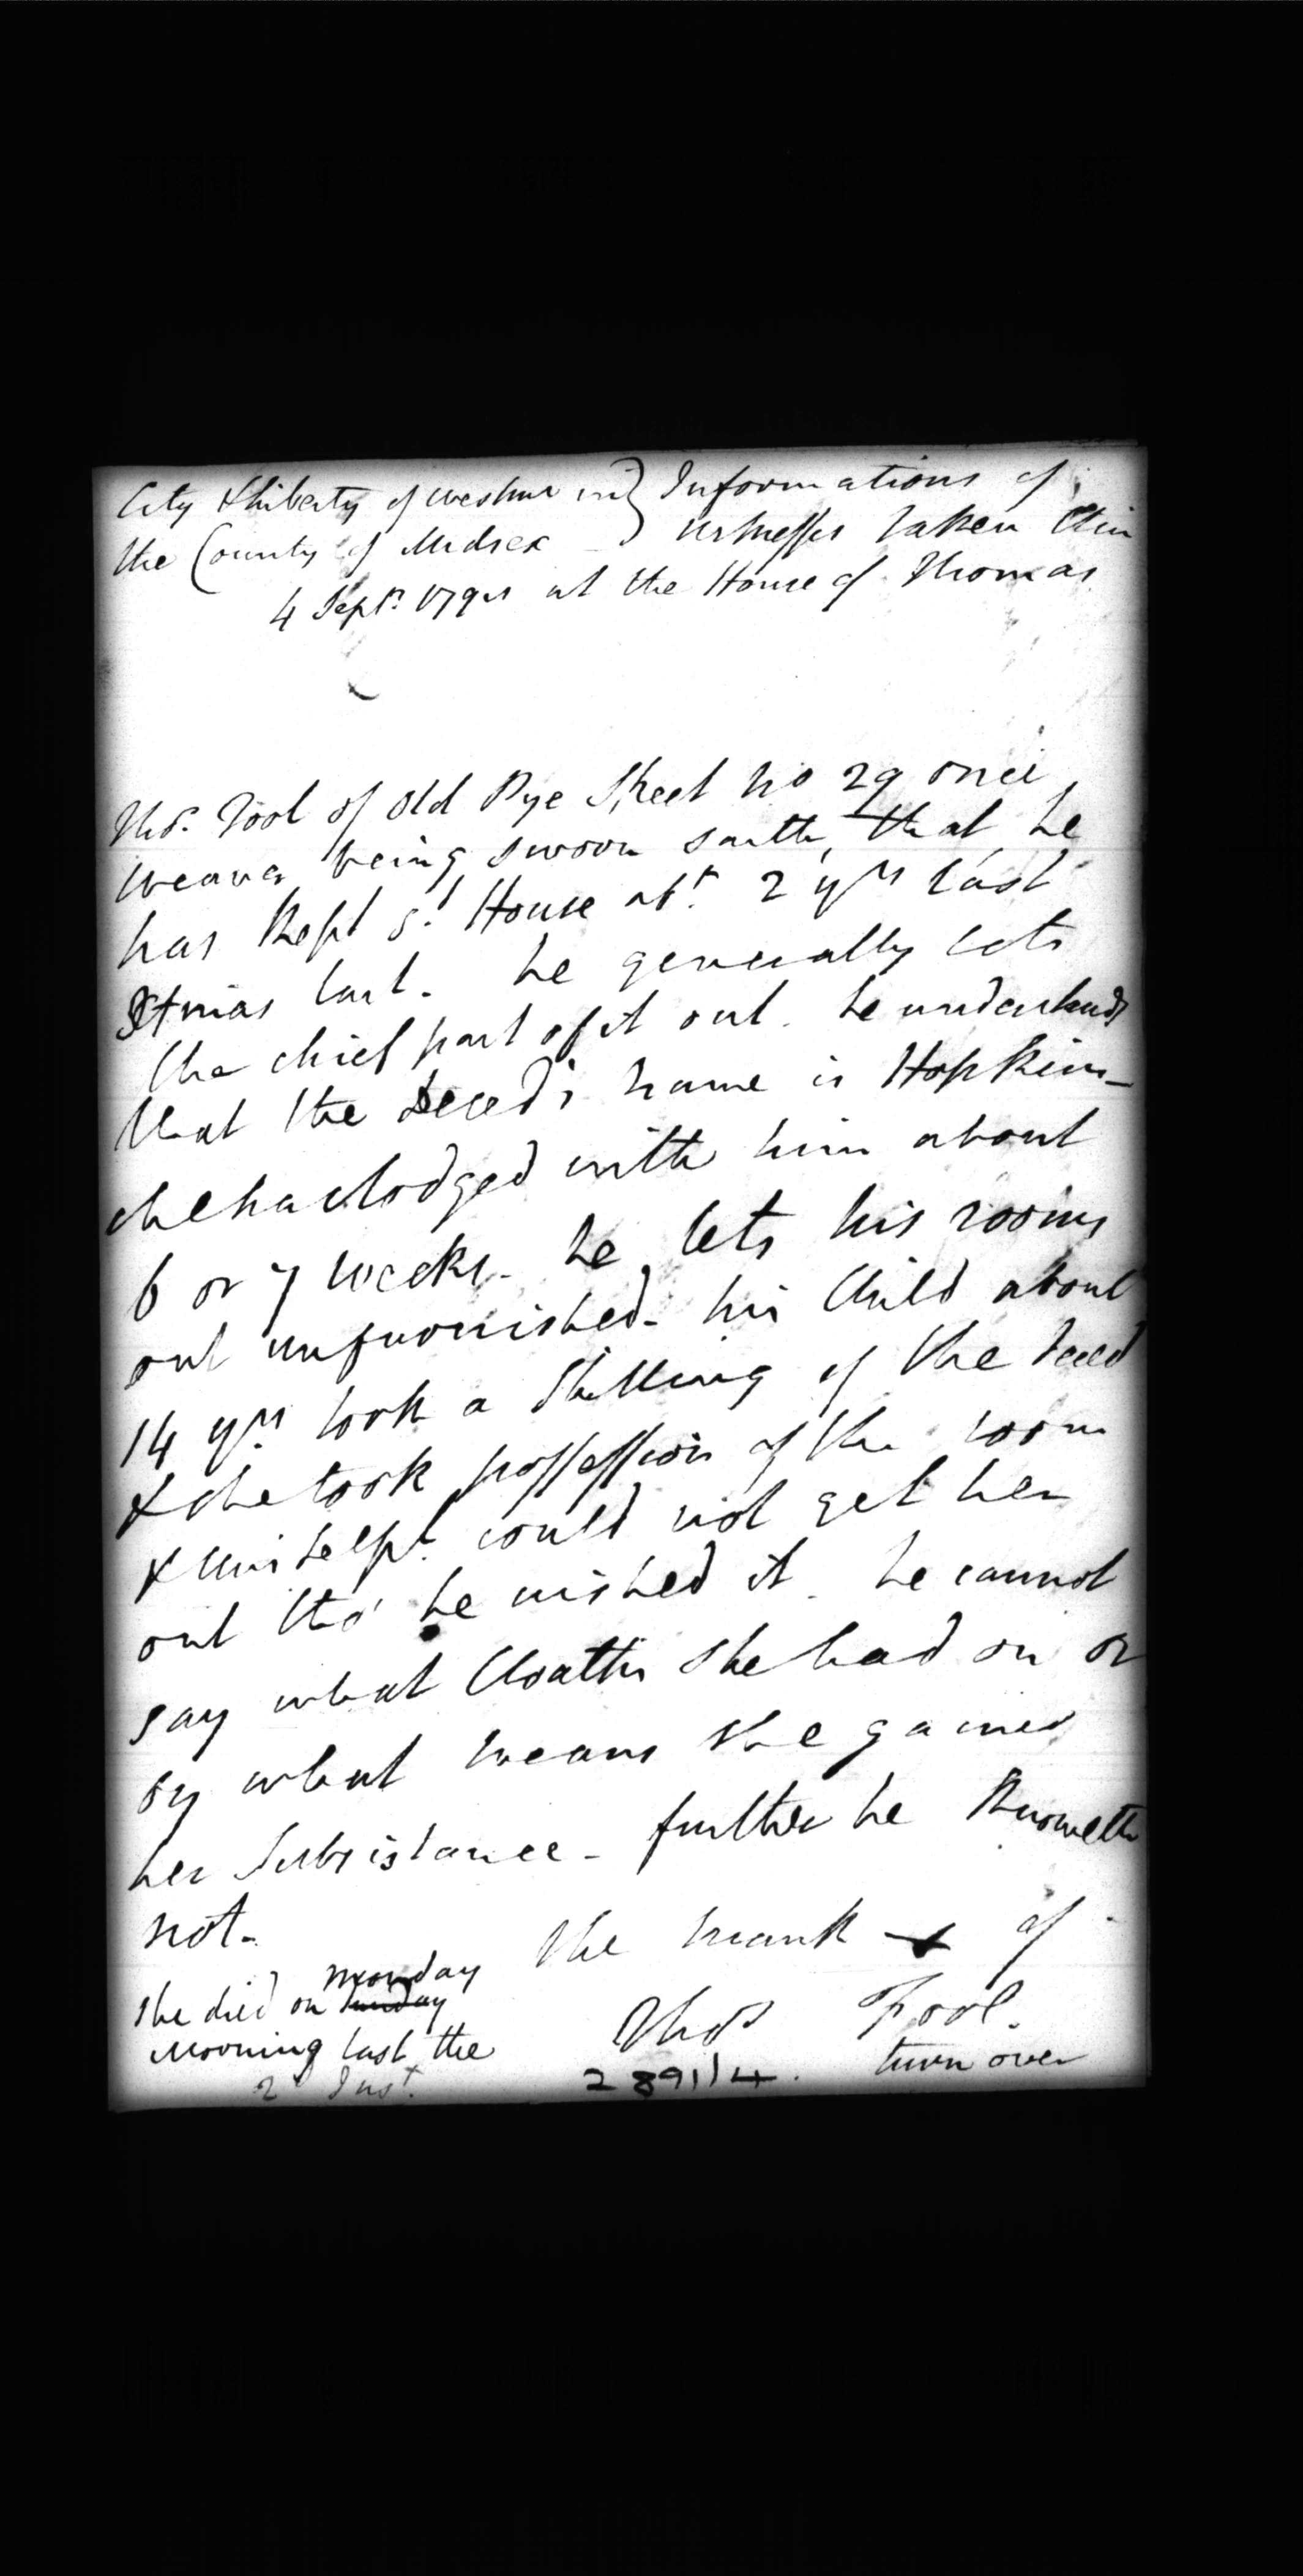 City & Liberty of Westmr in } Informations of
the County of Middsex } Witnesses taken this
4 Septr. 179 at the House of Thomas
Thos. Fool of Old Pye Street No 29
Weaver being sworn saith, that he
has kept sd. House abt. 2 yrs last
Xtmas last. he generally lets
the chief part of it out. he understands
that the Deced's name is Hopkins -
she has lodged with him about
6 or 7 weeks - he lets his rooms
out unfurnished - his Child about
14 yrs took a Shilling of the Deced
& she took possession of the room
& this dept. could not get her
out tho' he wished it. he cannot
say what Cloaths she had on or
by what means she gained
her Subsistance - further he knoweth
not -
The mark x of
Thos Fool.
she died on sunday monday
morning last the
2d Inst.
turn over
289114.